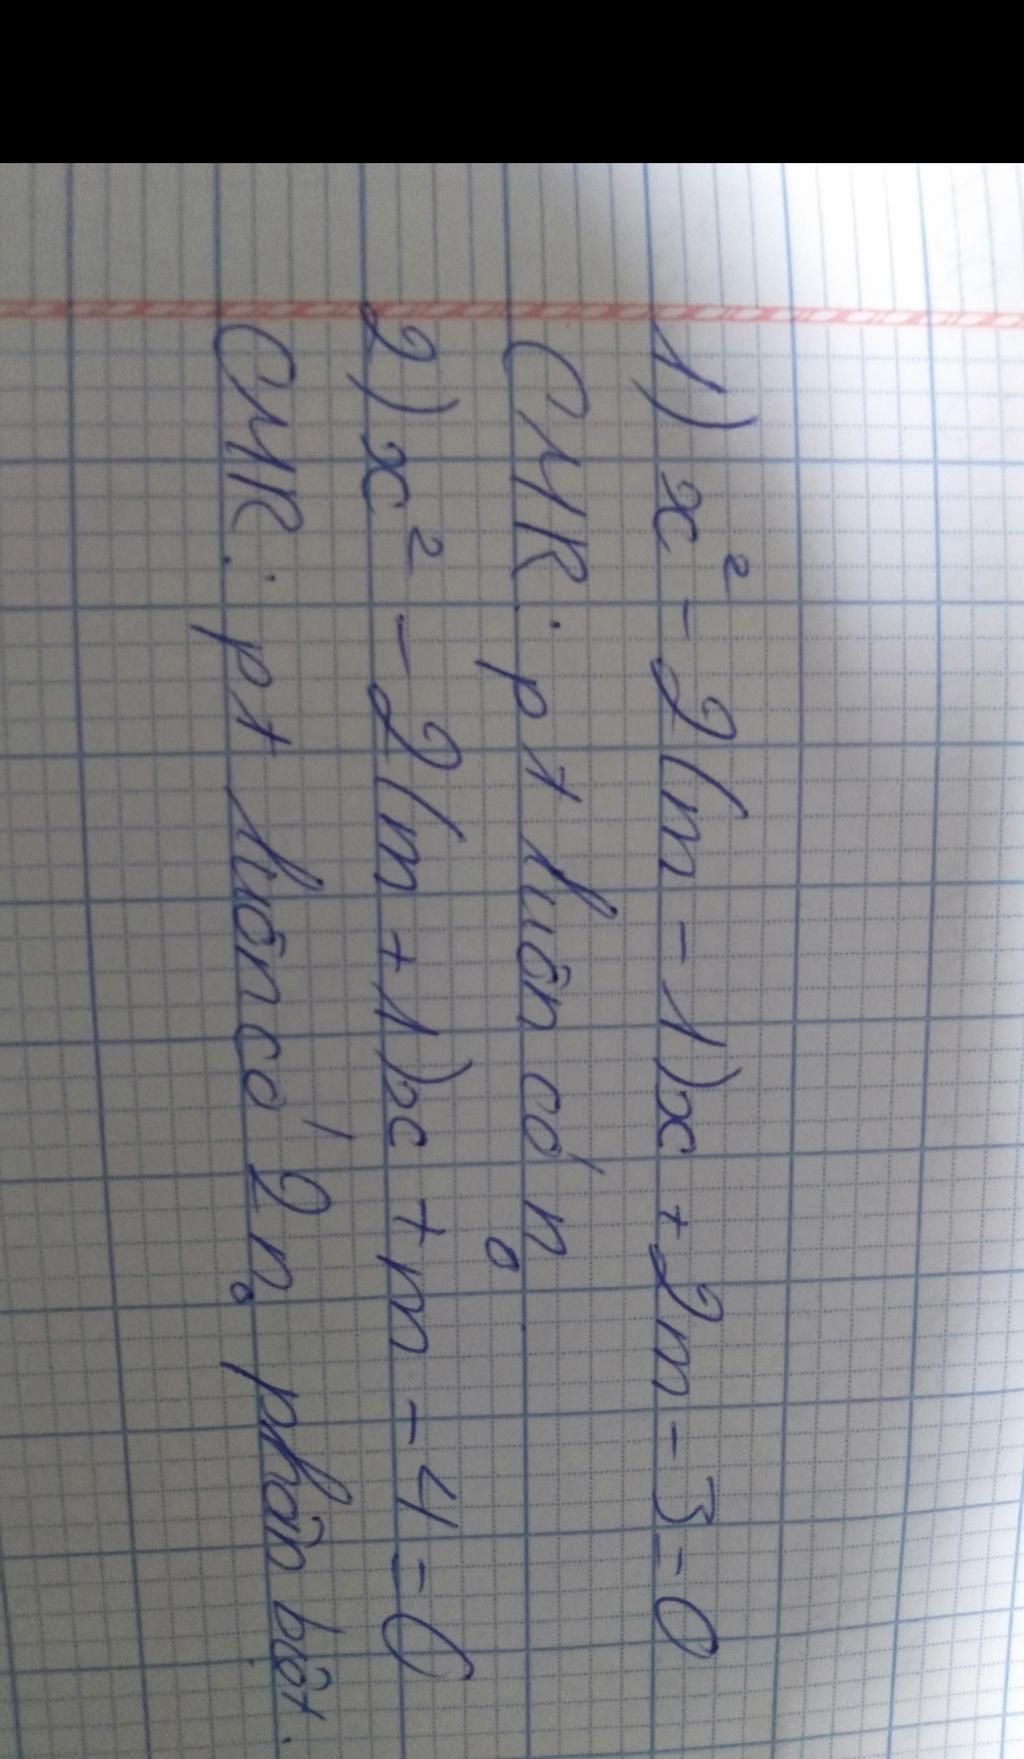 1) x² - 2(m - 1)x + 2m - 3 = 0
CMR: pt luôn có n0
2) x² - 2(m + 1)x + m - 4 = 0
CMR: pt luôn có 2 n0 phân biệt.